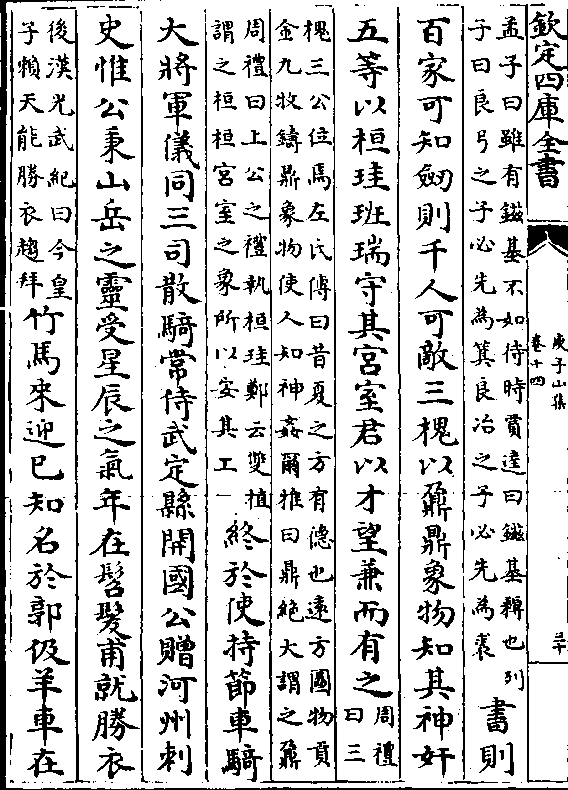 欽定四庫全書
庾子山集
卷十四
三十
孟子曰雖有鎡基不如待時賈逵曰鎡基耨也列
子曰良弓之子必先為箕良冶之子必先為裘
書則
百家可知劒則千人可敵三槐以鼐鼎象物知其神奸
五等以桓珪班瑞守其宮室君以才望兼而有之
周禮
曰三
槐三公位焉左氏傳曰昔夏之方有德也遠方圖物貢
金九牧鑄鼎象物使人知神姦爾雅曰鼎絶大謂之鼐
周禮曰上公之禮執桓珪鄭云雙植
謂之桓桓宮室之象所以安其工
終於使持節車騎
大將軍儀同三司散騎常侍武定縣開國公贈河州刺
史惟公秉山岳之靈受星辰之氣年在髫髮甫就勝衣
後漢光武紀曰今皇
子賴天能勝衣趨拜
竹馬來迎已知名於郭伋羊車在